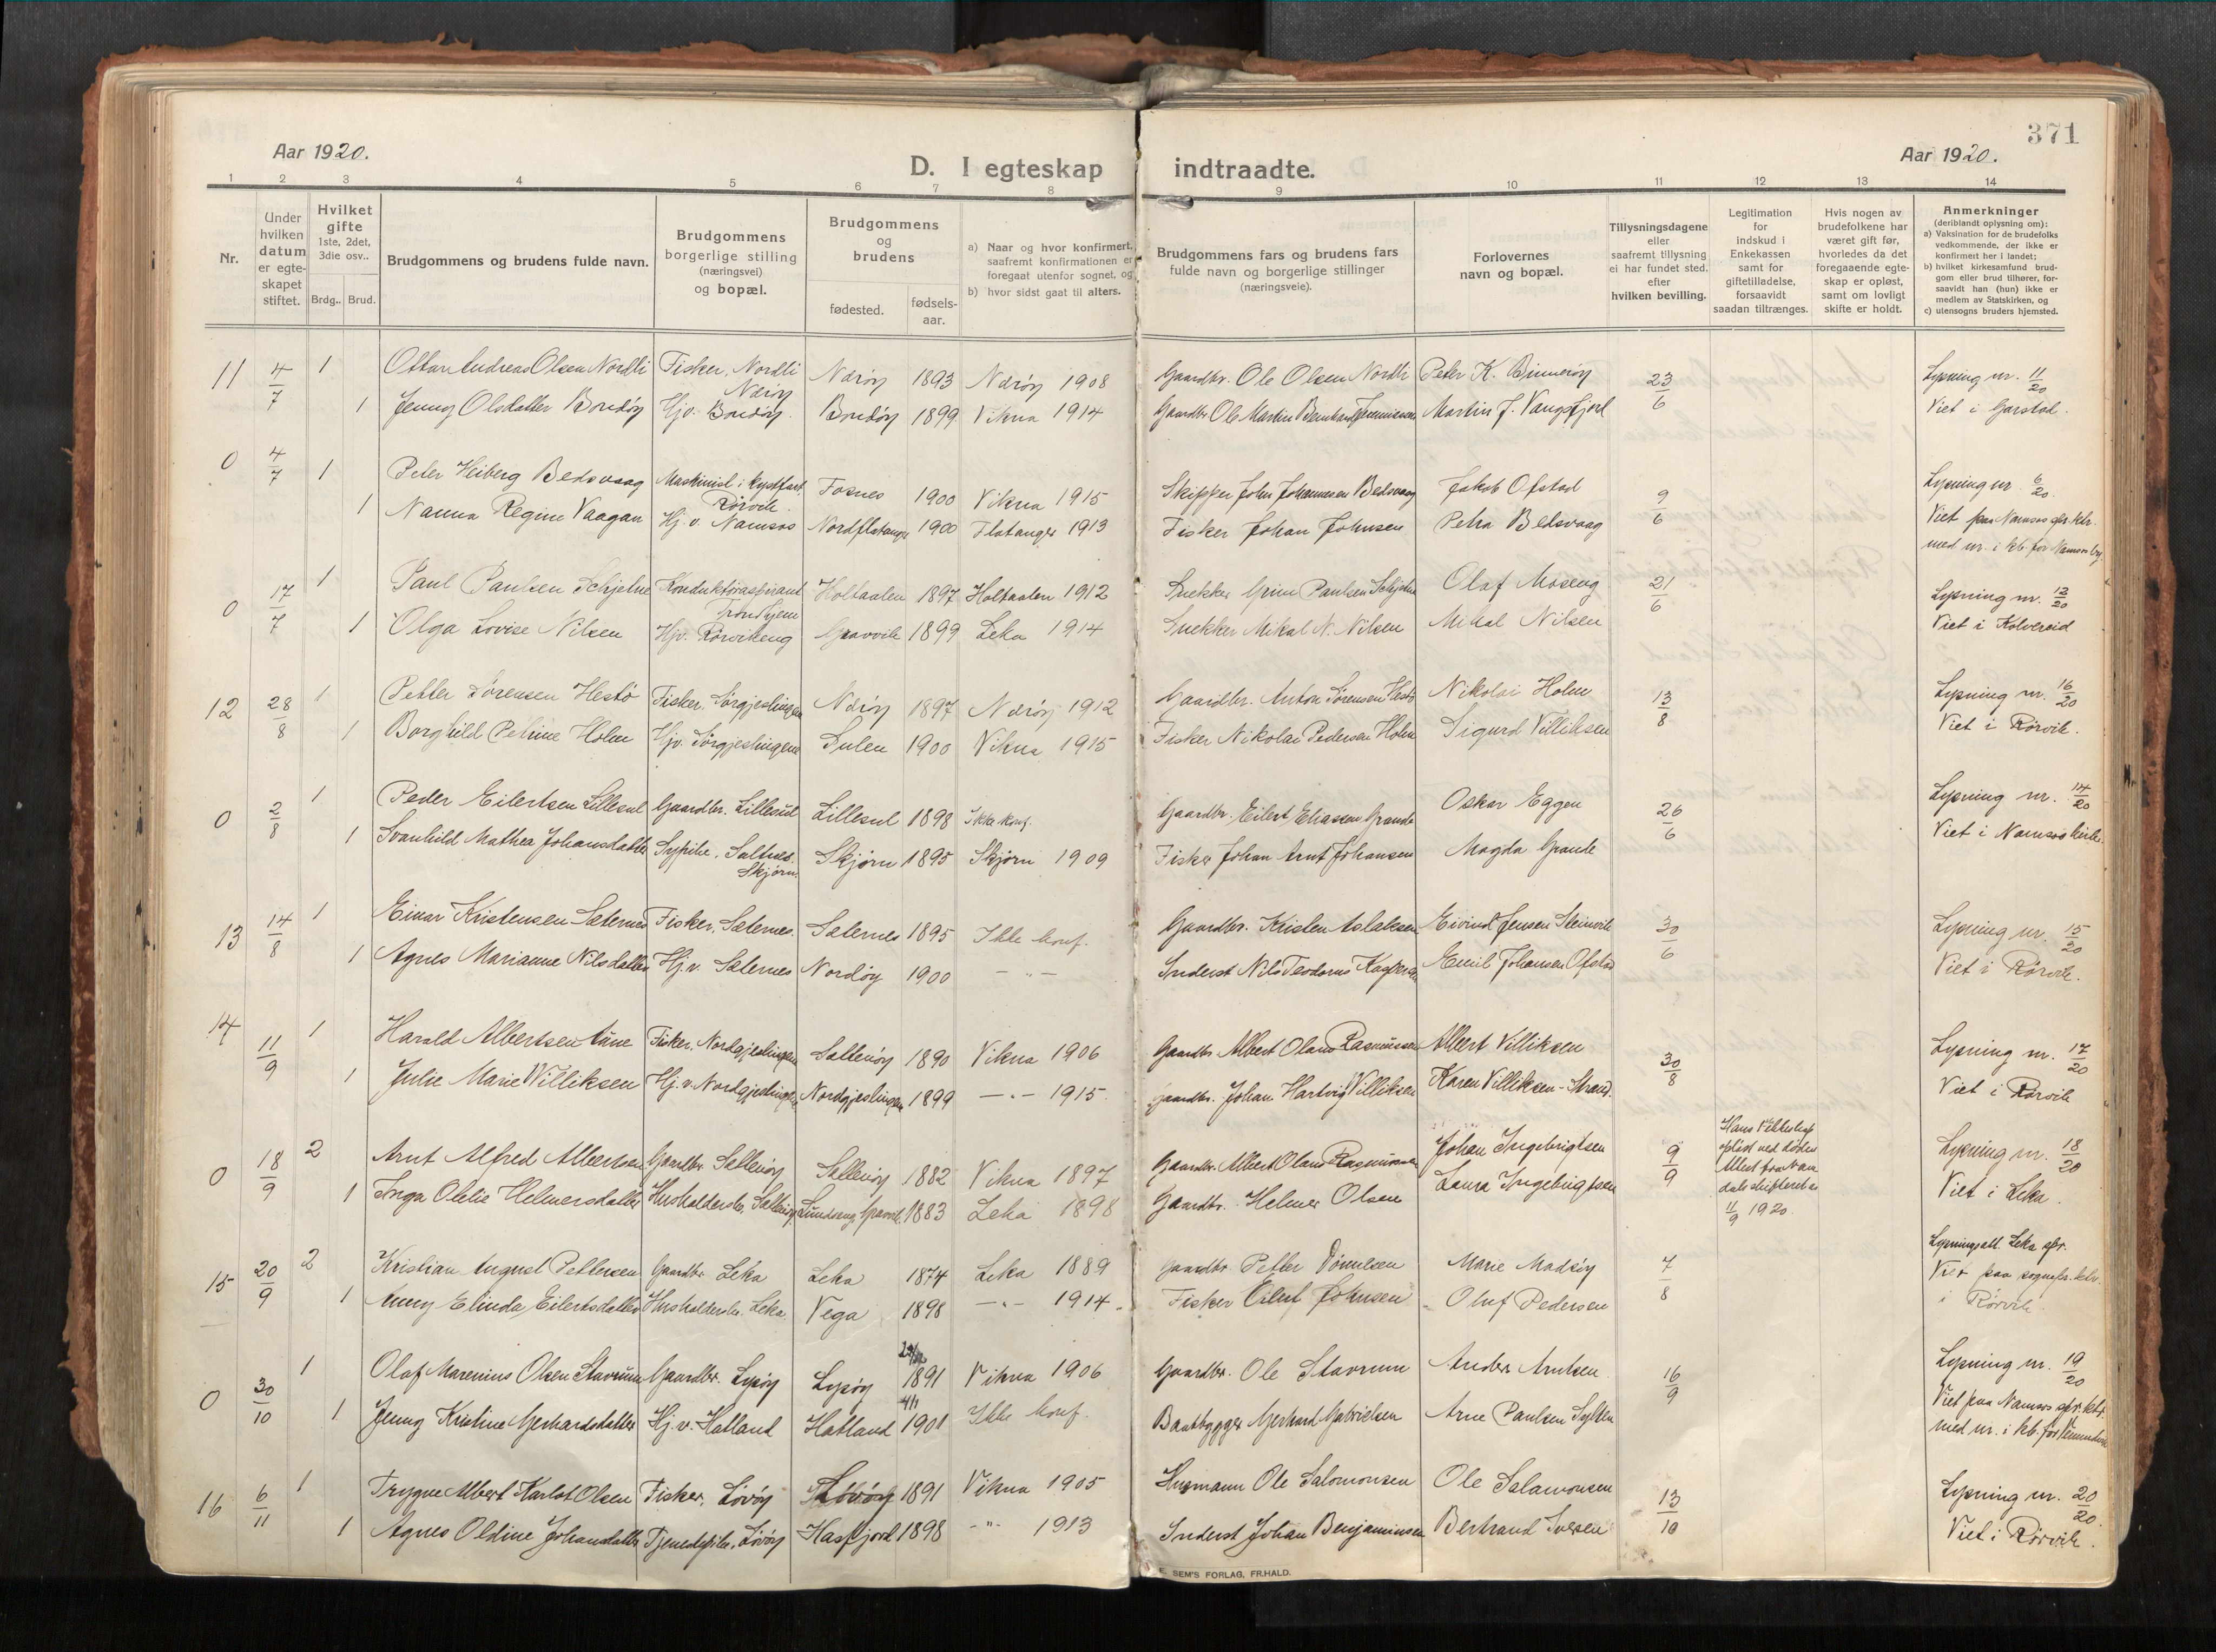 371
Aar 1920.
Aar 1920.
D. I egteskap indtraadte.
1 2 3 4 5 6 7 8 9 10 11 12 13 14
Nr.
Under hvilken datum er egteskapet stiftet.
Hvilket gifte 1ste, 2det, 3die osv..
Brdg.. Brud.
Brudgommens og brudens fulde navn.
Brudgommens borgerlige stilling (næringsvei) og bopæl.
Brudgommens og brudens
fødested.
fødsels-aar.
a) Naar og hvor konfirmert, saafremt konfirmationen er foregaat utenfor sognet, og
b) hvor sidst gaat til alters.
Brudgommens fars og brudens fars fulde navn og borgerlige stillinger (næringsveie).
Forlovernes navn og bopæl.
Tillysningsdagene eller saafremt tillysning ei har fundet sted. efter hvilken bevilling.
Legitimation for indskud i Enkekassen samt for giftetilladelse, forsaavidt saadan tiltrænges.
Hvis nogen av brudefolkene har været gift før, hvorledes da det foregaaende egteskap er opløst, samt om lovligt skifte er holdt.
Anmerkninger (deriblandt oplysning om):
a) Vaksination for de brudefolks vedkommende, der ikke er konfirmert her i landet;
b) hvilket kirkesamfund brudgom eller brud tilhører, forsaavidt han (hun) ikke er medlem av Statskirken, og
c) utensogns bruders hjemsted.
11 4/7 1 Ottar Andreas Olsen Nordli Fisker, Nordli Nærøy Nærøy 1893 Nærøy 1908 Gaardbr. Ole Olsen Nordli Peter K. Binnerøy 23/6 Lysning nr. 11/20
1 Jenny Olsdatter Bondøy Hjv. Bondøy. Bondøy 1899 Vikna 1914 Gaardbr. Ole Martin Bernhard Martin J. Vangsfjord Viet i Garstad.
0 4/7 1 Peter Heiberg Bedsvaag Maskinist i kystfart. Rörvik. Fosnes 1900 Vikna 1915 Skipper John Johannesen Bedsvaag Jakob Ofstad 9/6 Lysning nr. 6/20.
1 Nanna Regine Vaagan Hj. v. Namsos Nordflatanger 1900 Flatanger 1913 Fisker Johan Johnsen Petra Bedsvaag Viet paa Namsos spr. ktr.
med nr. i kb. for Namsos by.
0 17/7 1 Paul Paulsen Schjelne Konduktøraspirant Trondhjem Holtaalen 1897 Holtaalen 1912 Snekker Grim Paulsen Schjelne Olaf Moseng 21/6 Lysning nr. 12/20
1 Olga Lovise Nilsen Hjv. Rörvikeng Gravvik 1899 Leka 1914 Snekker Mikal N. Nilsen Mikal Nilsen Viet i Kolvereid
12 28/8 1 Petter Sörensen Hestö Fisker, Sörgjeslingen Nærøy 1897 Nærøy 1912 Gaardbr. Anton Sörensen Hestö Nikolai Holm 13/8 Lysning nr. 16/20
1 Borghild Petrine Holm Hjv. Sörgjeslingene Sulen 1900 Vikna 1915 Fisker Nikolai Pedersen Holm Sigurd Villiksen Viet i Rörvik.
0 2/8 1 Peder Eilertsen Lillesul Gaardbr. Lillesul Lillesul 1898 Ikke konf. Gaardbr. Eilert Eliassen Grande Oskar Eggen 26/6 Lysning nr. 14/20
1 Svanhild Mathea Johansdatter Sypike. Saltnes. Skjörn. Skjörn 1895 Skjörn 1909 Fisker Johan Arnt Johansen Magda Grande Viet i Namsos kirke.
13 14/8 1 Einar Kristensen Sæternes Fisker. Sæternes. Sæternes 1895 Ikke konf. Gaardbr. Kristen Aslaksen Eivind Jensen Steinvik 30/6 Lysning nr. 15/20
1 Agnes Marianne Nilsdatter Hj.v. Sæternes Nordøy 1900 — " — Inderst Nils Teodorus Kaspersen Emil Johansen Ofstad Viet i Rörvik.
14 11/9 1 Harald Albertsen Aune Fisker, Nordgjeslingen Saltenöy 1890 Vikna 1906 Gaardbr. Albert Olaus Rasmussen Albert Villiksen 30/8 Lysning nr. 17/20
1 Julie Marie Williksen Hj. v. Nordgjeslingen Nordgjeslingen 1899 — " — 1915. Gaardbr. Johan Hartvig Villiksen Karen Villiksen - Strand. Viet i Rörvik
0 18/9 2 Arnt Alfred Albertsen Gaardbr. 1882 Vikna 1897 Gaardbr. Albert Olaus Rasmussen Johan Ingebrigtsen 9/9 Hans 1ste ved döden 11/9 1920. Lysning nr. 18/20
1 Inga Husholderske. 1883 Leka 1898 Gaardbr. Helmer Olsen Laura Ingebrigtsen Viet i Leka.
15 20/9 2 Kristian August Pettersen Gaardbr. Leka Leka 1874 Leka 1889 Gaardbr. Petter Marie Madsöy 7/8 Lysningsatt. Leka spr.
1 Elinda Eilertsdatter Husholderske. Leka Vega 1898 — " — 1914 Fisker Eilert Johnsen Oluf Pedersen Viet paa sognepr. ktr. i Rörvik
0 30/10 1 Olaf Marenius Olsen Stavrum Gaardbr. Lysöy Lysöy 1891 Vikna 1906 Gaardbr. Ole Stavrum Anders Arntsen 16/9 Lysning nr. 19/20
1 Jenny Kristine Gerhardsdatter Hj. v. Hatland Hatland 4/11 1901 Ikke konf. Baatbygger Gerhard Gabrielsen Arne Paulsen Viet paa Namsos spr. ktr.
med nr. i kb. for
16 6/11 1 Trygve Albert Karlot Olsen Fisker, Lövöy Lövöy 1891 Vikna 1905 Husmann Ole Salomonsen Ole Salamonsen 13/10 Lysning nr. 20/20.
1 Agnes Oldine Johansdatter Tjenestepike. Lövöy Hasfjord 1898 — " — 1913 Inderst Johan Benjaminsen Bertrand Iversen Viet i Rörvik.
E. SEM'S FORLAG, FR.HALD.